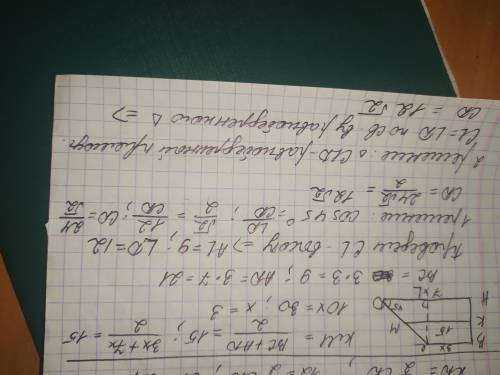 KM = \frac{BC + AD}{2} = 15; \frac{3x + 7x}{2} = 15
10x = 30, x = 3
BC = 3 · 3 = 9; AD = 3 · 7 = 21
Проведем CL - высоту => AL = 9; LD = 12
1 решение: cos 45° = \frac{LD}{CD}; \frac{\sqrt{2}}{2} = \frac{12}{CD}; CD = \frac{24}{\sqrt{2}}
CD = \frac{24\sqrt{2}}{2} = 12\sqrt{2}
2 решение: △ CLD - равнобедренный прямоуг.
CL = LD по св-ву равнобедренного △ =>
CD = 12\sqrt{2}
B 3x C
K 15 M
7x L